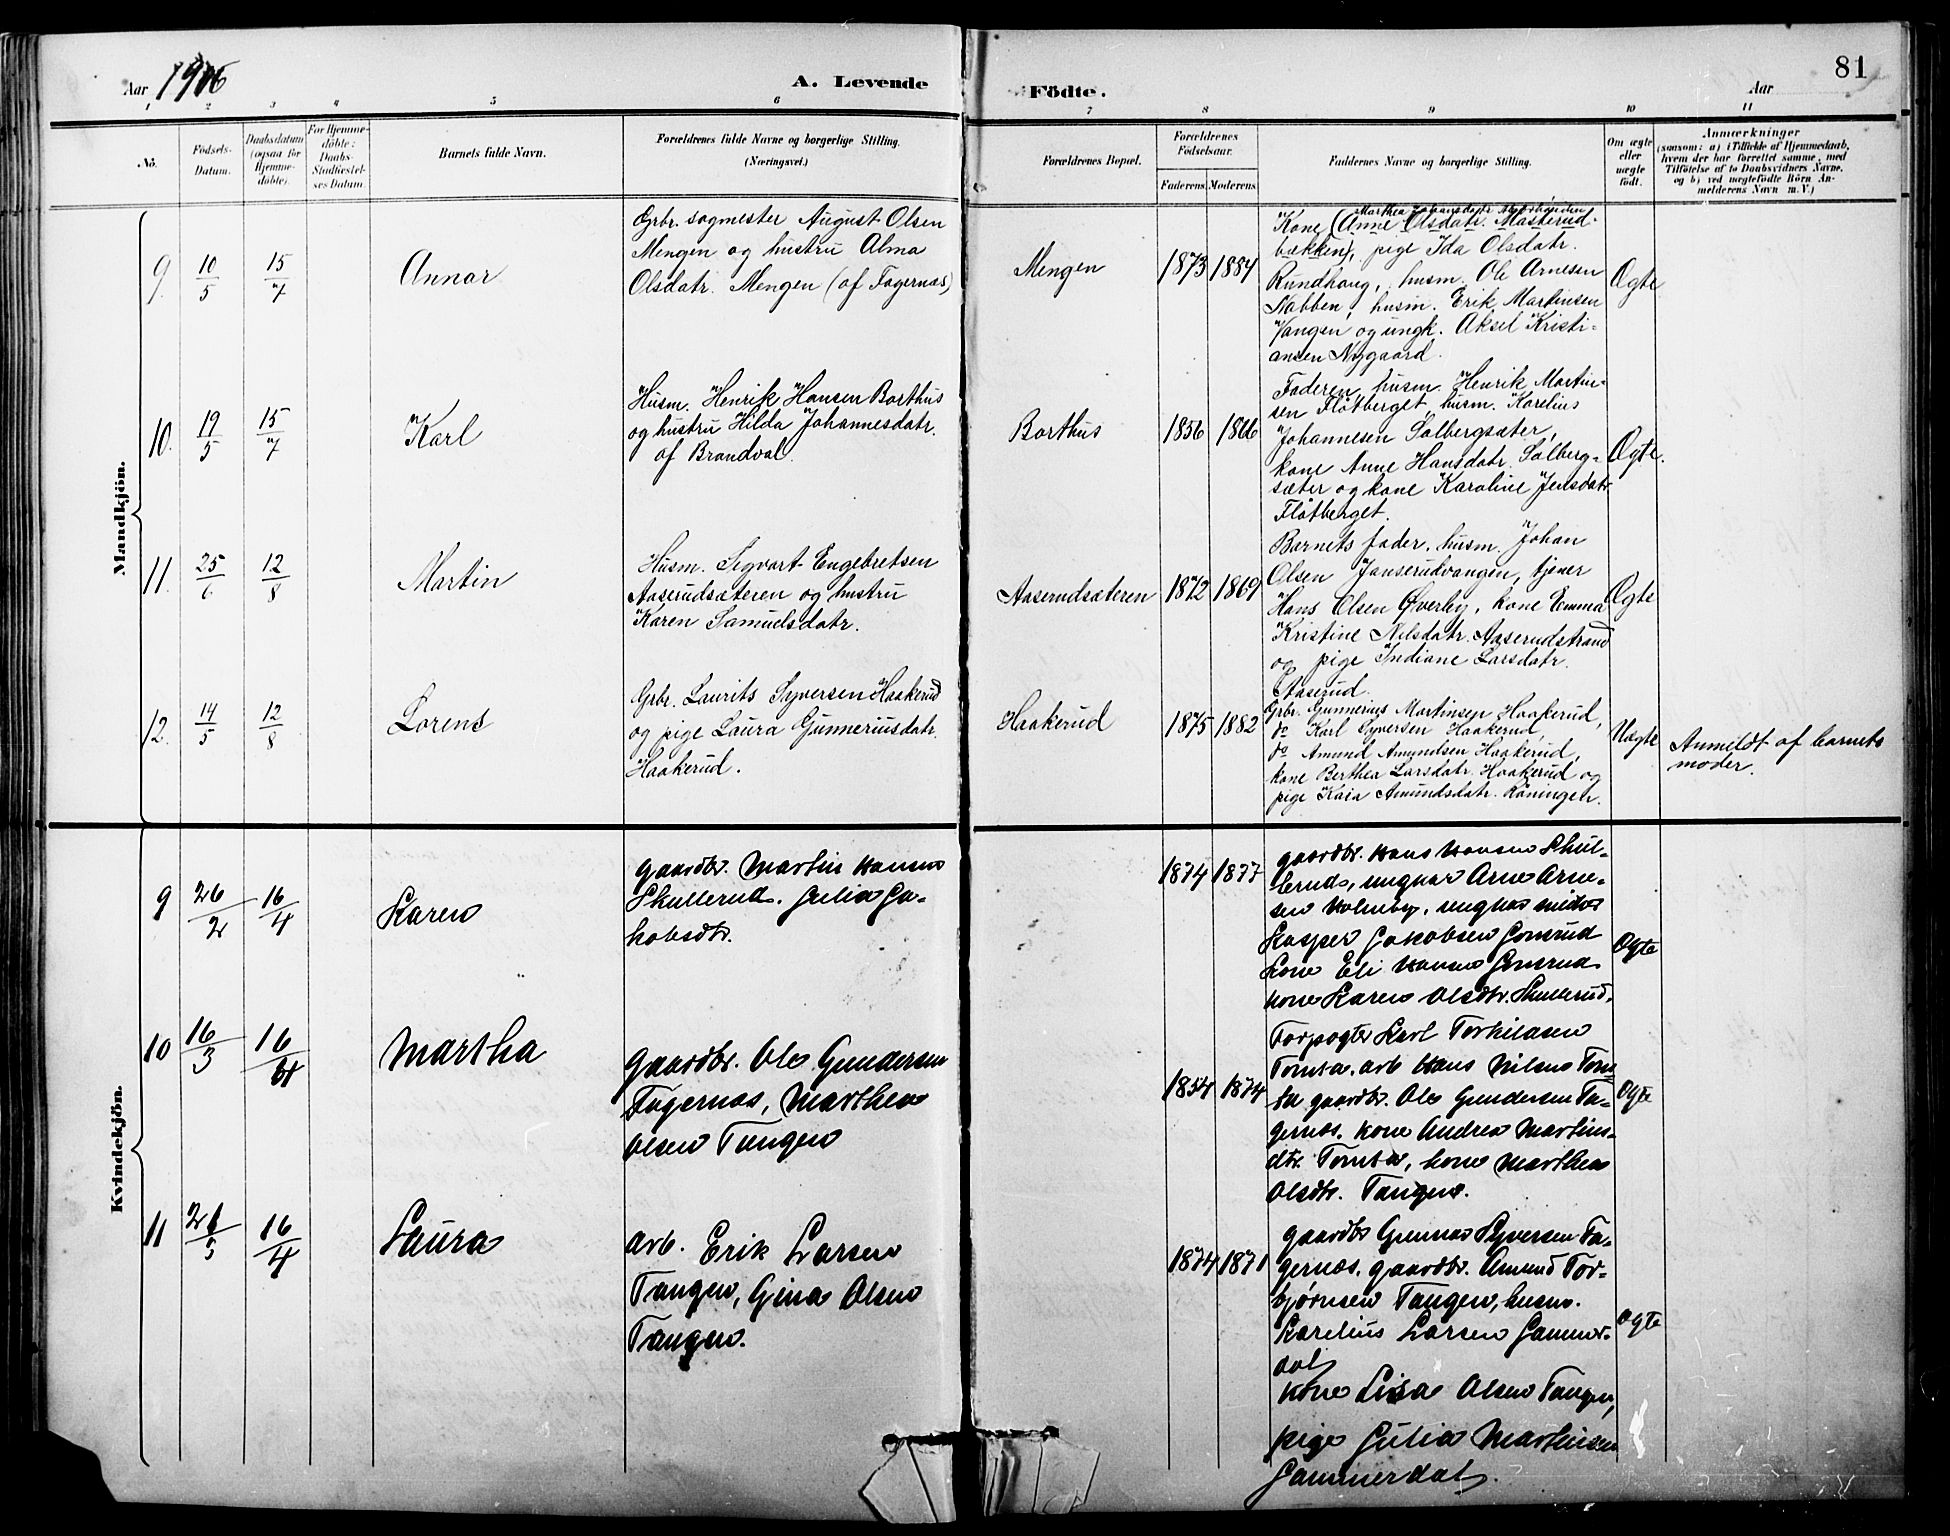 Aar 1906
A. Levende
Födte.
Aar
81
1 2 3 4 5 6 7 8 9 10 11
No.
Födsels-
Datum.
Daabsdatum
(ogsaa for
Hjemme-
döbte).
For Hjemme-
döbte:
Daabs-
Stadfæstel-
ses Datum.
Barnets fulde Navn.
Forældrenes fulde Navne og borgerlige Stilling.
(Næringsvei.)
Forældrenes Bopæl.
Forældrenes
Födselsaar.
Faderens. Moderens.
Faddernes Navne og borgerlige Stilling.
Om ægte
eller
uægte
födt.
Anmærkninger
(saasom: a) i Tilfælde af Hjemmedaab,
hvem der har forrettet samme, med
Tilföielse af to Daabsvidners Navne,
og b) ved uægtefödte Börn An-
melderens Navn m. V.)
Mandkjön.
9. 10/5 15/7
Annar
Grbr. sagmester August Olsen
Mengen og hustru Alma
Olsdatr. Mengen (af Fagernæs)
Mengen
1873 1884
Kone (Anne Olsdatr. Masterud-
bækken), pige Ida Olsdatr.
Rundhaug, husm. Ole Arnesen
Nabben, husm. Erik Martinsen
Vangen og ungk. Aksel Kristi-
ansen Nygaard.
Ægte
10. 19/5 15/7
Karl
Husm. Henrik Hansen Borthus
og hustru Hilda Johannesdatr.
af Brandval.
Borthus
1856 1866
Faderen, husm. Henrik Martin-
sen Flötberget, husm. Karelius
Johannesen Solbergsæter,
kone Anne Hansdatr. Solberg-
sæter og kone Karoline Jensdatr.
Flötberget.
Ægte.
11. 25/6 12/8
Martin
Husm. Sigvart Engebretsen
Aaserudsæteren og hustru
Karen Samuelsdatr.
Aaserudsæteren
1872 1869
Barnets fader, husm. Johan
Olsen Janserudvangen, tjener
Hans Olsen Øverby, kone Emma
Kristine Nilsdatr. Aaserudstrand
og pige Indiane Larsdatr.
Aaserud.
Ægte
12. 14/5 12/8
Lorens
Grbr. Laurits Syversen Haakerud
og pige Laura Gunneriusdatr.
Haakerud.
Haakerud
1875 1882
Grbr. Gunnerius Martinsen Haakerud,
do Karl Syversen Haakerud,
do Amund Amundsen Haakerud,
kone Berthea Larsdatr. Haakerud og
pige Kaia Amundsdatr. Röningen.
Uægte
Anmeldt af barnets
moder.
Kvindekjön.
9 26/2 16/4
Karen
gaardbr. Martin Hansen
Skullerud. Julia Ja-
kobsdtr.
1874 1877
gaardbr. Hans Hansen Skul-
lerud, ungkar Arne Arne-
sen Holmby, ungkar
Kasper Jakobsen
kone Eli Hansen
kone Karen Olsdtr. Skullerud.
Ægte
10 16/3 16/4
Martha
gaardbr. Ole Gundersen
Fagernæs, Marthea
Olsen Tangen
1854 1874
Forpagter Karl Torkilasen
Tomta. arb Hans Nilsen Tom
ta gaardbr. Ole Gundersen Fa-
gernæs. kone Andrea Martins-
dtr. Tomta, kone Marthea
Olsdtr. Tangen.
Ægte
11 21/3 16/4
Laura
arb. Erik Larsen
Tangen, Gina Olsen
Tangen.
1874 1871
gaardbr Gunnar Syversen Fa-
gernæs. gaardbr. Amund Tor-
bjørnsen Tangen, husm.
Karelius Larsen Gammer-
dal,
kone Lisa Olsen Tangen,
pige Julia Martinsen
Gammerdal.
Ægte